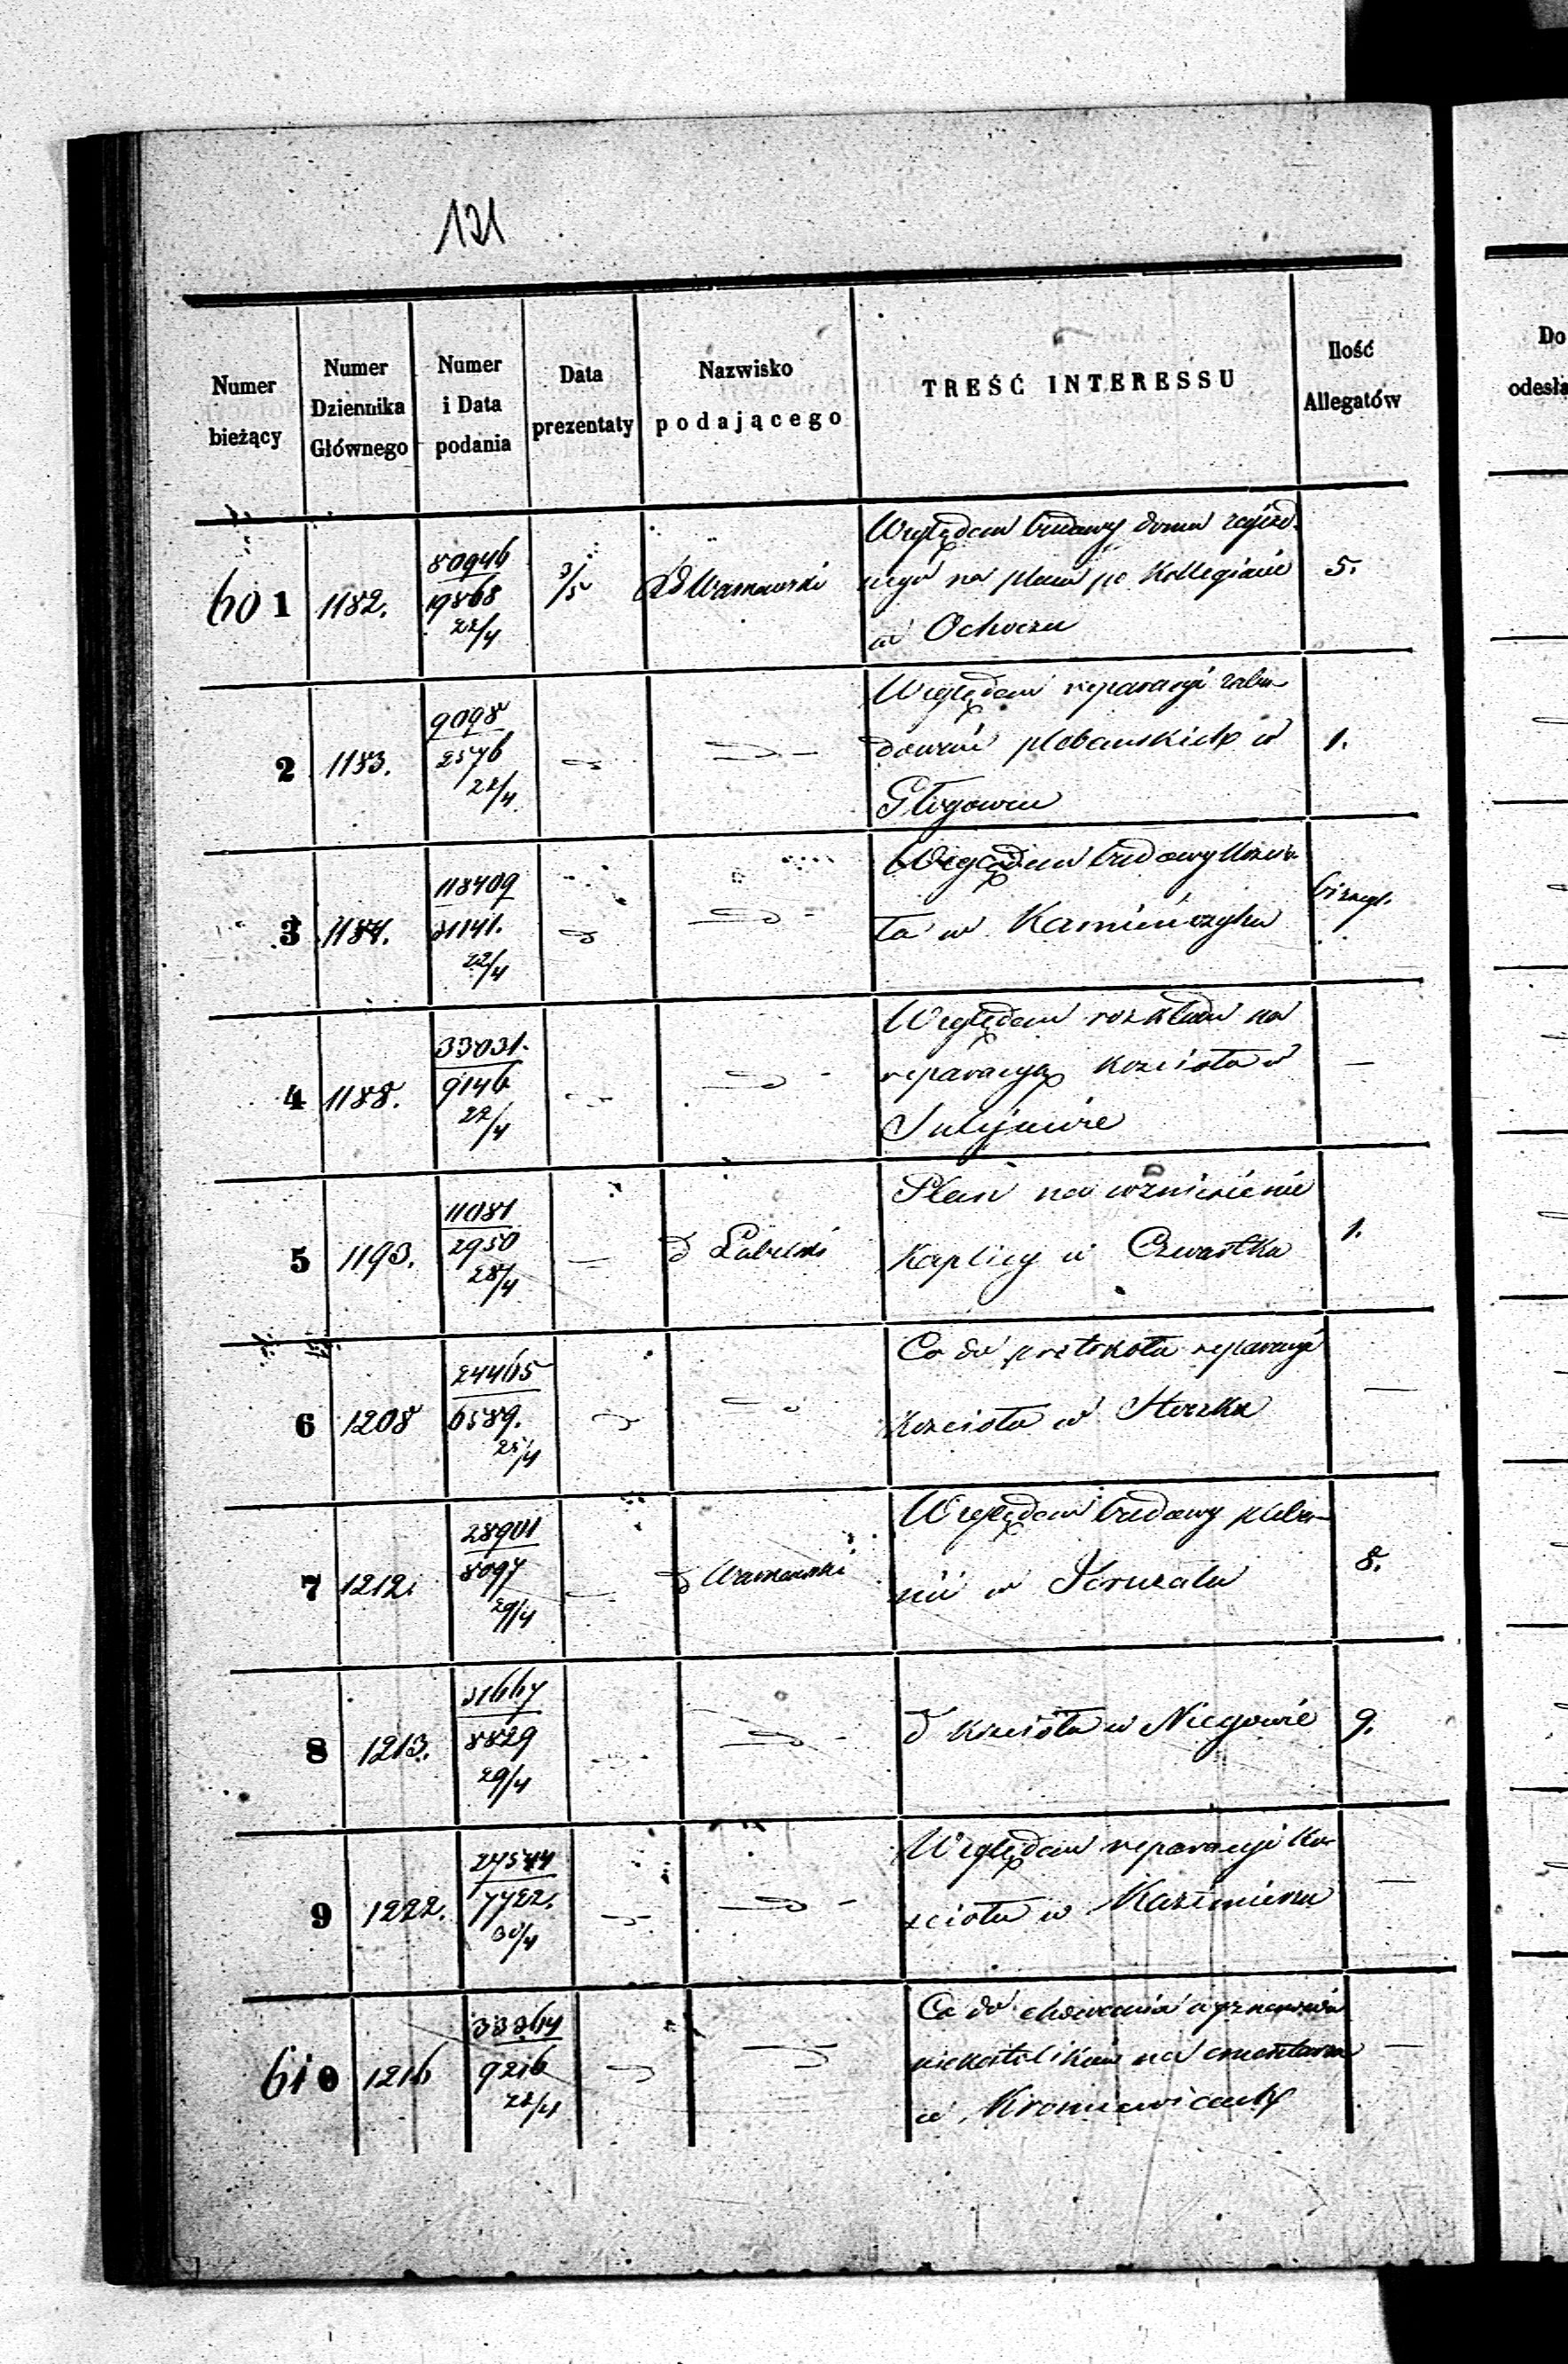 121
Numer bieżący | Numer Dziennika Głównego | Numer i Data podania | Data prezentaty | Nazwisko podającego | TREŚĆ INTERESSU | Ilość Allegatów
Do
odesła
601 | 1182. | 80946 / 19868 22/4 | 3/5 | Warszawski | Względem budowy domu
na placu po Kollegiacie
w | 5.
2 | 1183. | 9098 / 2576 22/4 | Względem reparacyi zabu-
dowań plebańskich w
Głogowcu | 1.
3 | 1184. | 118409 / 31141. 22/4 | Względem budowy Kościo-
ła w Kamieńczyku
4 | 1188. | 33031. / 9146 22/4 | Względem rozkładu na
reparacyą kościoła w
— 
5 | 1193. | 11081 / 2950 28/4 | — | d Lubelski | Plan na wzniesienie
Kaplicy w Czwartku | 1.
6 | 1208 | 24465 / 6589. 25/4 | Co do protokołu reparacyi
Kościoła w Stoczku | —
7 | 1212. | 28901 / 8097 29/4 | — | d Warszawski | Względem budowy pleba-
nii w Jeruzalu | 8.
8 | 1213. | 31667 / 8829 29/4 | d kościoła w Niegowie | 9.
9 | 1222. | 27544 / 7722. 30/4 | Względem reparacyi Ko-
ścioła w Kazimierzu | —
610 | 1216 | 33264 / 9216 22/4 | Co do chowania
niekatolików na cmentarzu
w | —